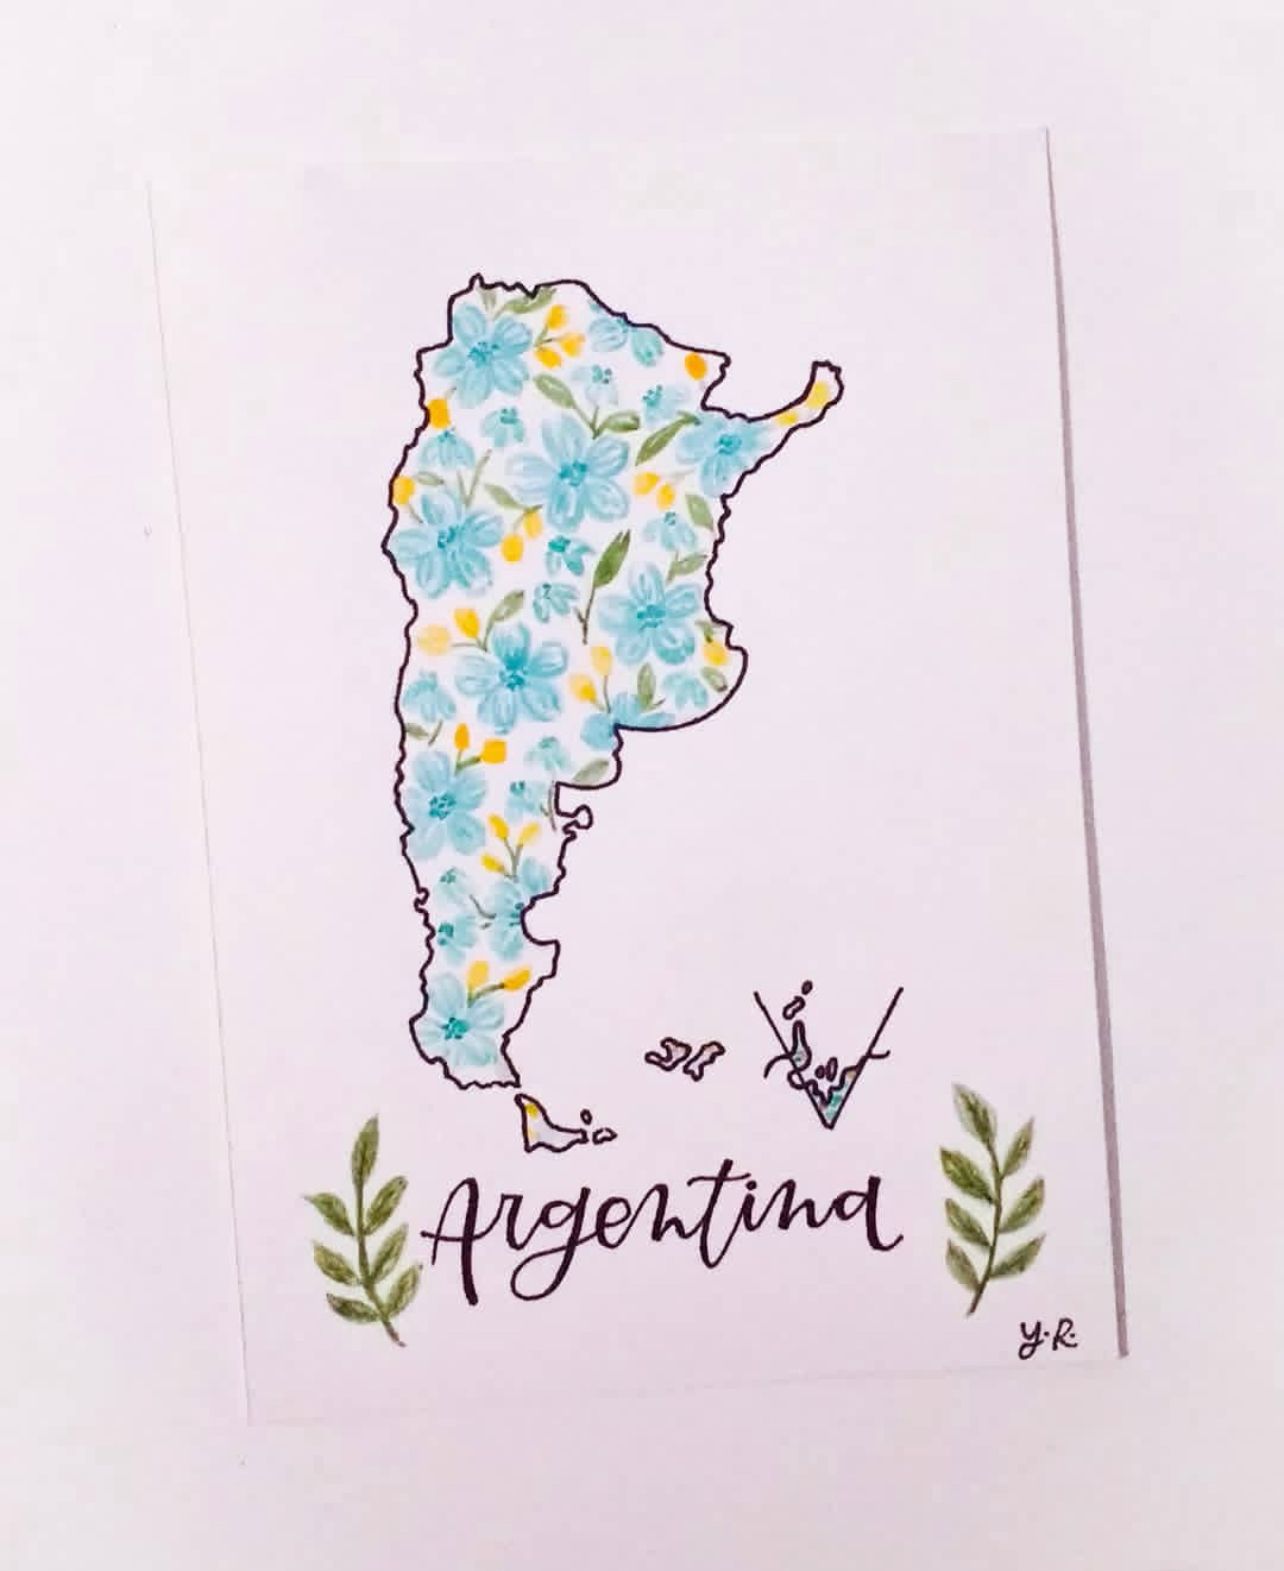 Argentina
Y.R.